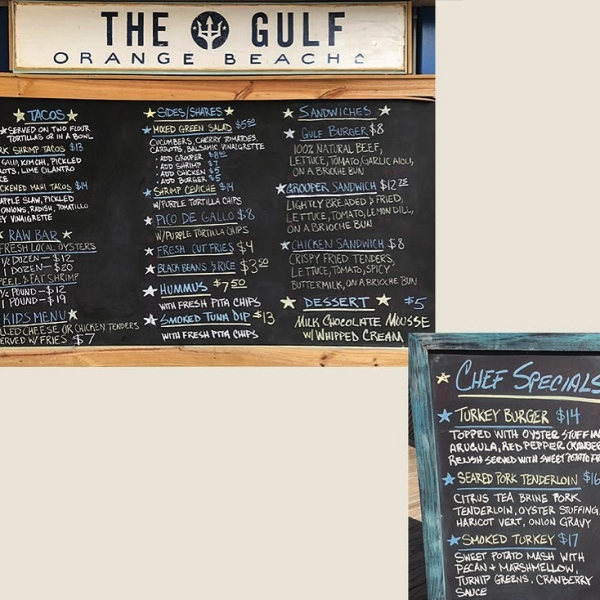 THE GULF
ORANGE BEACH
TACOS
SERVED ON TWO FLOUR
TORTILLAS OR IN A BOWL
SHRIMP TACOS $13
KIMCHI, PICKLED
LIME CILANTRO
MAHI TACOS $14
SLAW, PICKLED
ONIONS, RADISH, TOMATILLO
VINAIGRETTE
RAW BAR
FRESH LOCAL OYSTERS
1/2 DOZEN - $12
1 DOZEN - $20
PEEL & EAT SHRIMP
1/2 POUND - $12
1 POUND - $19
KIDS MENU
CHEESE OR CHICKEN TENDERS
SERVED W/ FRIES $7
SIDES/SHARES
MIXED GREEN SALAD $5.50
CUCUMBERS, CHERRY TOMATOES,
CARROTS, BALSAMIC VINAIGRETTE
• ADD GROUPER
• ADD SHRIMP $7
• ADD CHICKEN $5
• ADD BURGER $5
SHRIMP CEVICHE $14
W/PURPLE TORTILLA CHIPS
PICO DE GALLO $8
W/PURPLE TORTILLA CHIPS
FRESH CUT FRIES $4
BLACK BEANS & RICE $3.50
HUMMUS $7.50
WITH FRESH PITA CHIPS
SMOKED TUNA DIP $13
WITH FRESH PITA CHIPS
SANDWICHES
GULF BURGER $8
100% NATURAL BEEF,
LETTUCE, TOMATO, GARLIC AIOLI,
ON A BRIOCHE BUN
GROUPER SANDWICH $12
LIGHTLY BREADED & FRIED,
LETTUCE, TOMATO, LEMON DILL,
ON A BRIOCHE BUN
CHICKEN SANDWICH $8
CRISPY FRIED TENDERS,
LETTUCE, TOMATO, SPICY
BUTTERMILK, ON A BRIOCHE BUN
DESSERT $5
MILK CHOCOLATE MOUSSE
W/ WHIPPED CREAM
CHEF SPECIALS
TURKEY BURGER $14
TOPPED WITH OYSTER STUFFIN
ARUGULA, RED PEPPER CRANBER
RELISH SERVED WITH SWEET POTATO FR
SEARED PORK TENDERLOIN $16
CITRUS TEA BRINE PORK
TENDERLOIN, OYSTER STUFFING,
HARICOT VERT, ONION GRAVY
SMOKED TURKEY $17
SWEET POTATO MASH WITH
PECAN + MARSHMELLOW,
TURNIP GREENS, CRANBERRY
SAUCE